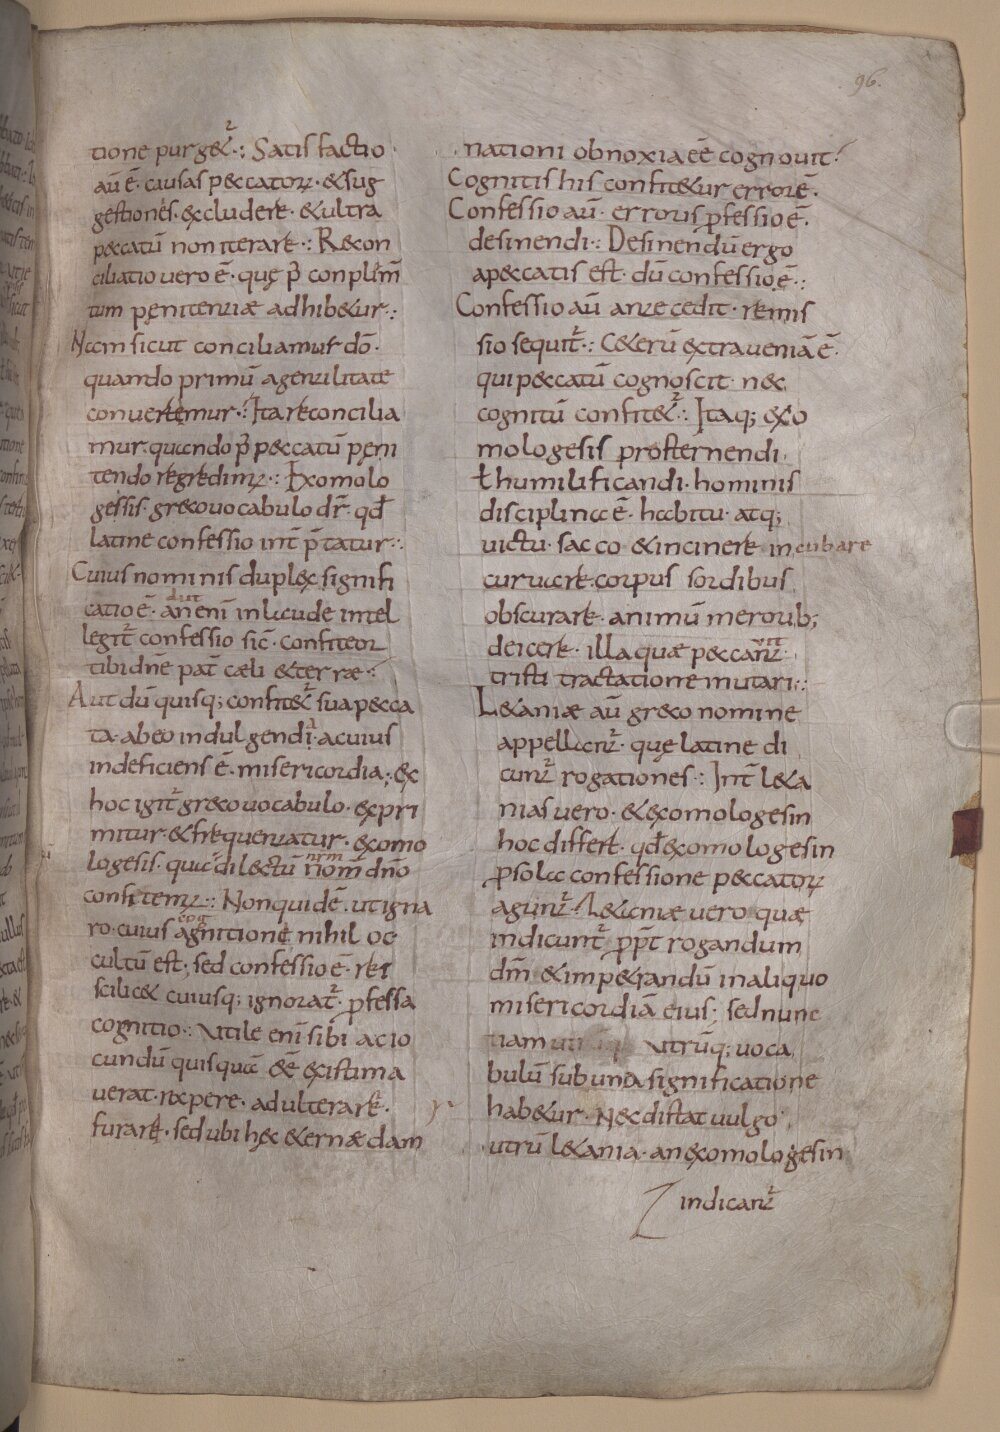 96.
tione purg&ᷣ·: Satisfactio·
aū ē· causas peccatoꝝ· & sug
gestiones· excludere· & ultra
peccatū non iterare·: Recon
ciliatio uero ē· quę p̄ conplim̄
tum penitentiae adhib&ur·:
Nam sicut conciliamur dō·
quando primū agentilitate
conuertemur·: Ita reconcilia
mur· quando p̄ peccatū peni
tendo regredimꝝ·: Exomolo
gessis· greco uocabulo dr̄· qđ
latine confessio int̄ p̄tatur·:
Cuius nominis duplex signifi
catio ē· an enī in laude intel
legit᷑ confessio sic̄· confiteor
tibi dn̄e pat̄ caeli & terrae·:
Aut dū quisq; confit&᷑ sua pecca
ta· ab eo indulgendi· a cuius
indeficiens ē· misericordia; ex
hoc igit᷑ greco uocabulo· expri
mitur· & frequentatur· exomo
logesis· qua dilectū nrm̄ nom̄ dn̄o
confitemꝝ·: Non quidē· ut igna
ro· cuius agnitionē nihil oc
cultū est; sed confessio ē· rei
scilic& cuiusq; ignorat᷑· professa
cognitio·: Vtile enī sibi ac io
cundū quisquā &ē existima
uerat· rapere· adulterare·
furare· sed ubi hęc &ernae dam
nationi obnoxia eē cognouit·
Cognitis his confit&ur errorē·
Confessio aū· erroris ꝓfessio ē·
desinendi·: Desinendū ergo
a peccatis est· dū confessio ē·:
Confessio aū antecedit· remis
sio sequit᷑·: C&erū extra ueniā ē·
qui peccatū cognoscit· nec
cognitū confit&᷑·: Itaq; exo
mologesis prosternendi·
ł humilificandi· hominis
disciplina ē· habitu· atq;
uictu· sacco & in cinere incubare
curare· corpus sordibus
obscurare· animū meroribꝫ
deicere· illa quae peccant᷑·
tristi tractatione mutari·:
L&aniae aū greco nomine
appellant᷑· que latine di
cunt᷑ rogationes·: Int̄ l&a
nias uero· & exomologesin
hoc differt· qđ exomologesin
ꝓ sola confessione peccatoꝝ
agunt᷑· L&aniae uero quae
indicunt᷑ ꝓpt̄ rogandum
dm̄ & imp&randū in aliquo
misericordiā eius; sed nunc
iam utrūq; uoca
bulū sub una significatione
hab&ur· Nec distat uulgo
utrū l&ania· an exomologesin
indicant᷑